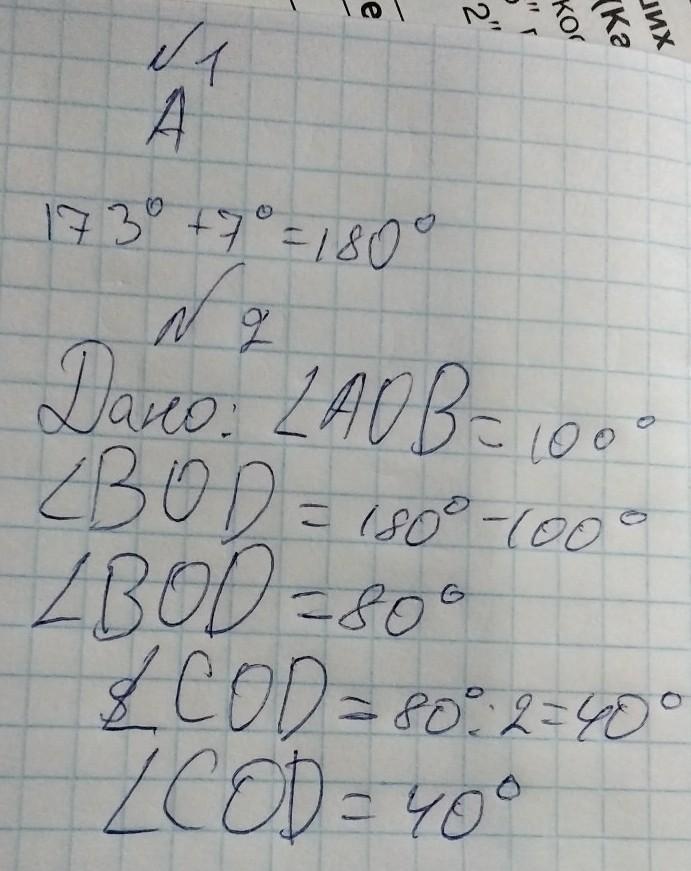 ших
(Ка
кос
2"
е
№1
А
173° + 7° = 180°
№ 2
Дано: ∠AOB = 100°
∠BOD = 180° - 100°
∠BOD = 80°
∠COD = 80° : 2 = 40°
∠COD = 40°